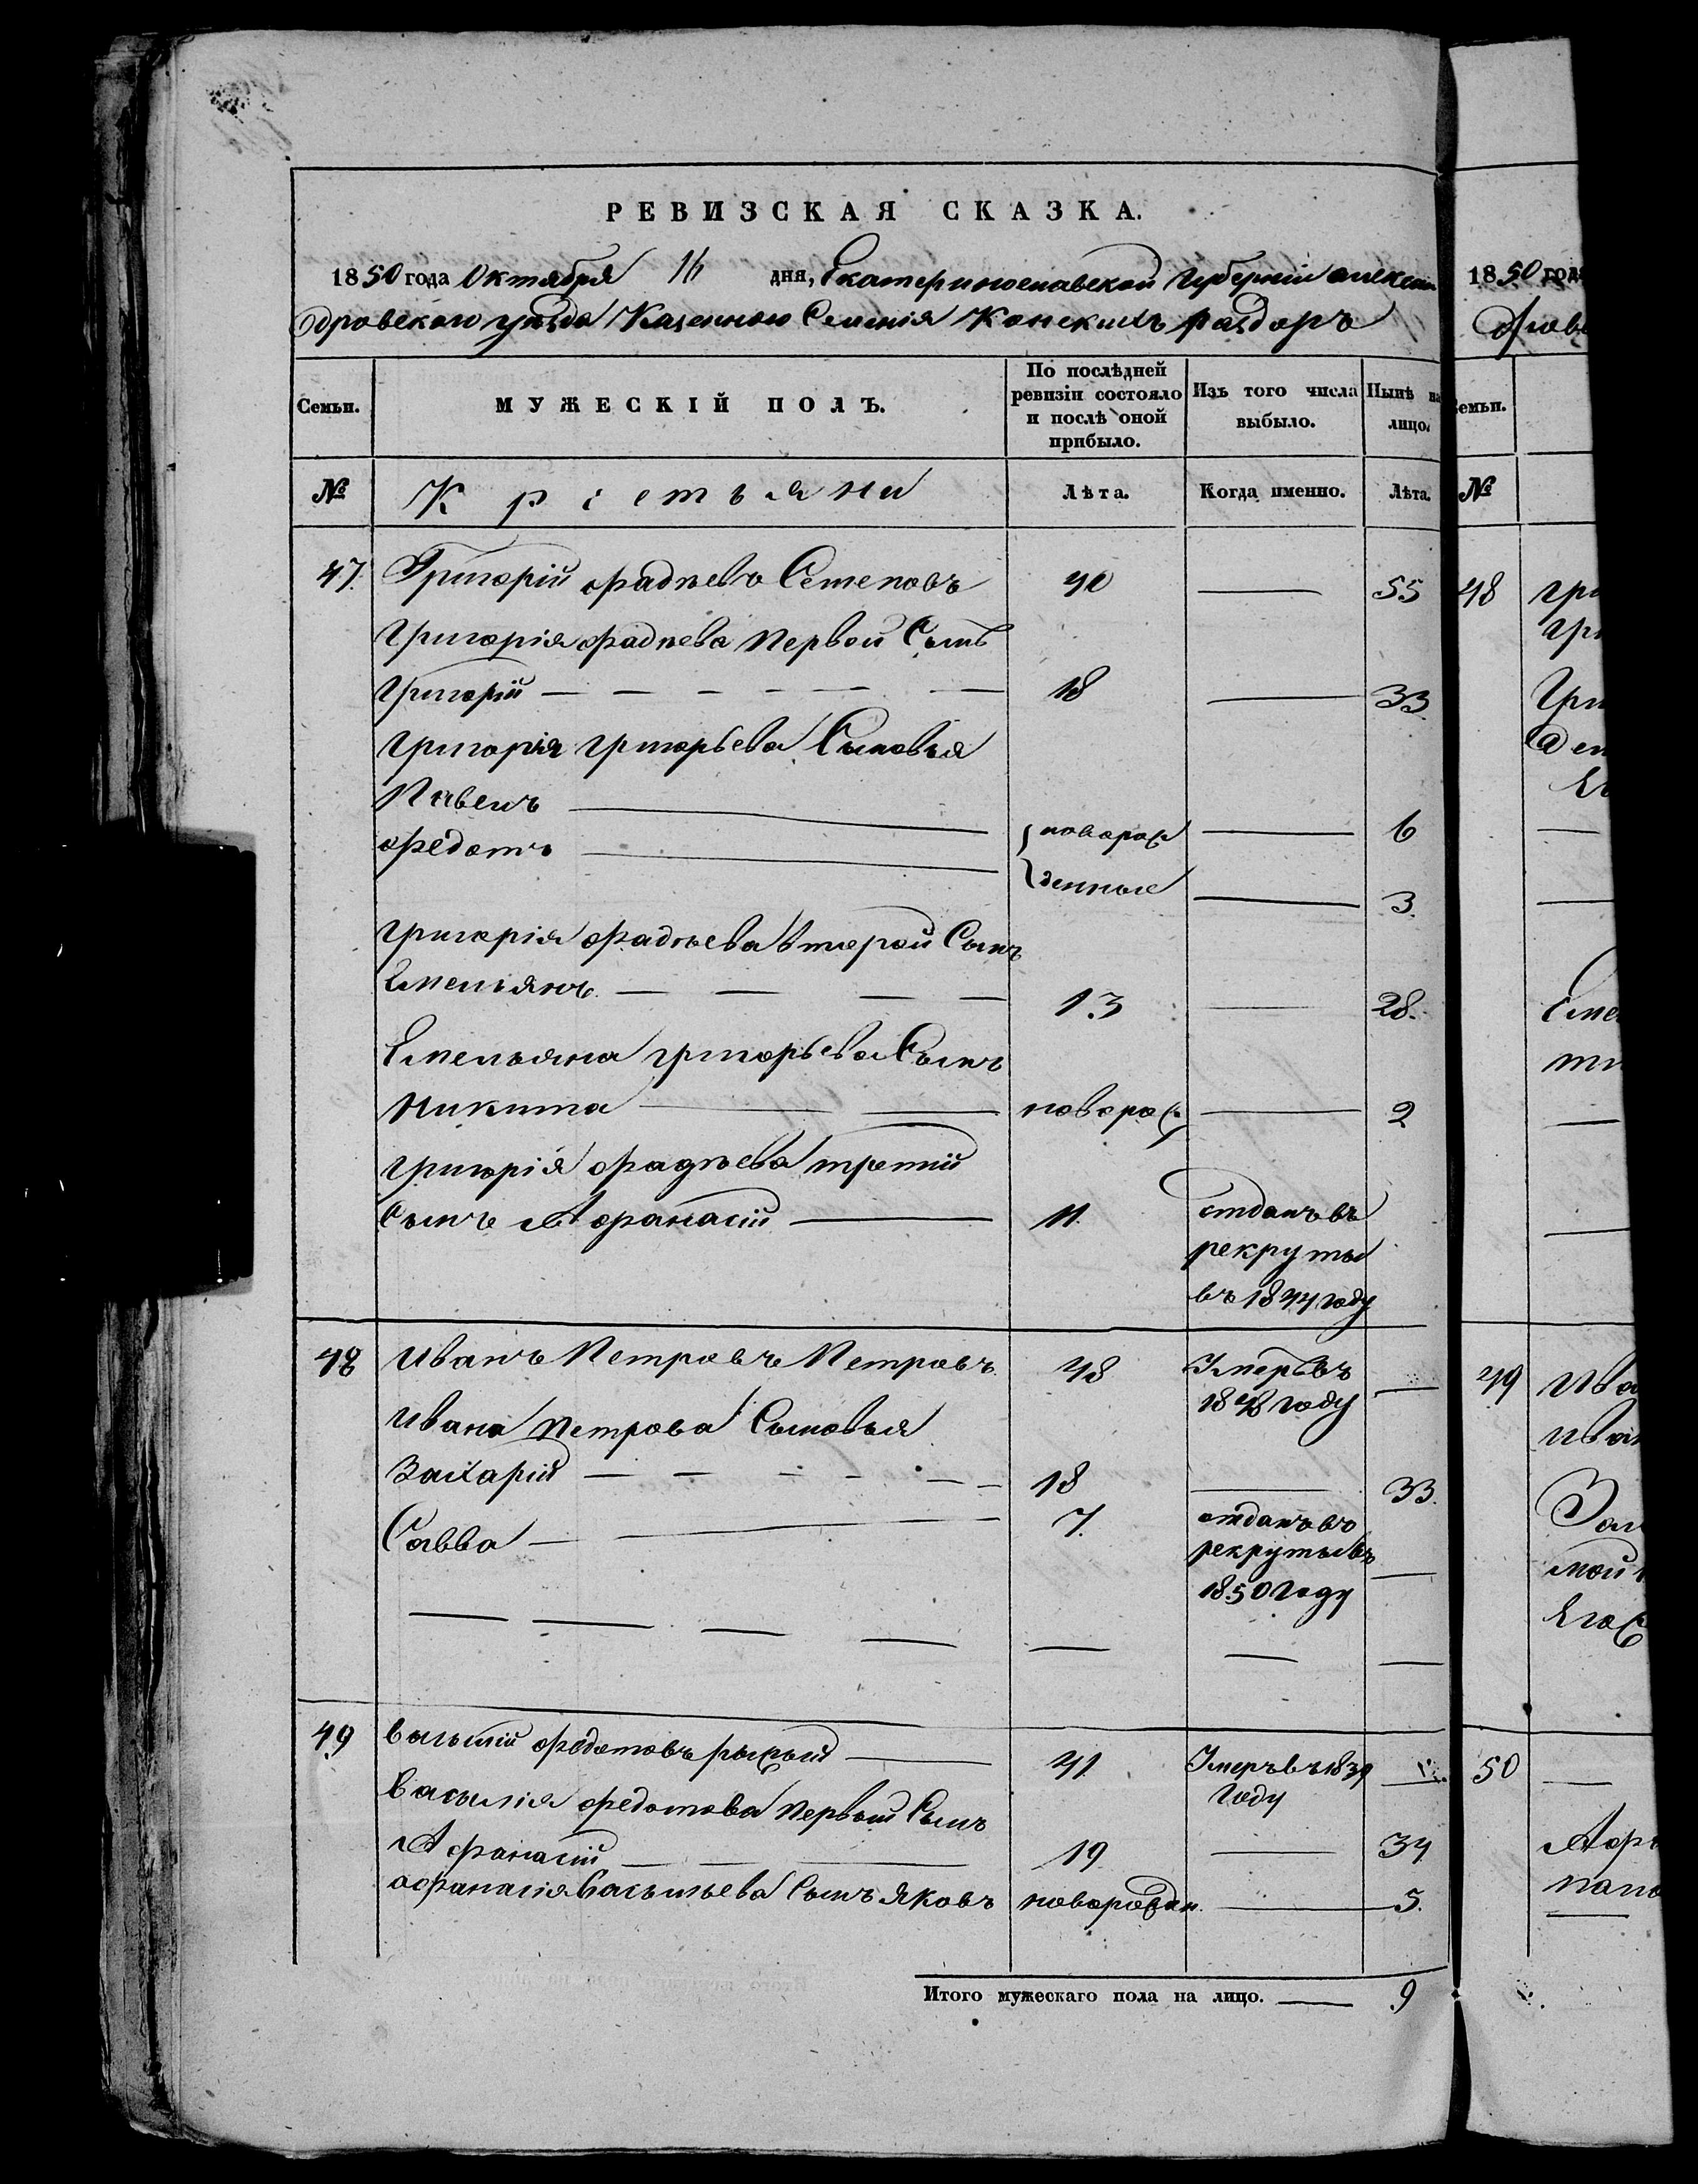 РЕВИЗСКАЯ СКАЗКА.
1850 года Октября 16 дня, Екатеринославской Губерніи алексан
дровскаго уѣзда Казенного Селенія Конскихъ раздоръ
Семьи. МУЖЕСКІЙ ПОЛЪ. По послѣдней ревизіи состояло и послѣ оной прибыло. Изъ того числа выбыло. Нынѣ на лицо.
№ Крестьяни Лѣта. Когда именно. Лѣта.
47. Григорій фадѣевъ Степовъ 40 — 55
Григорія фадѣева Первой Сынъ
Григорій — 18 — 33.
Григорія Григорьева Сыновья
Павелъ — новорож — 6
федотъ — денные — 3.
Григорія фадѣева второй Сынъ
Емельянъ — 13 — 28.
Емельяна григорьева Сынъ
Никита — новорож — 2
Григорія фадѣева третій
Сынъ Афанасій — 11. отданъ въ
рекруты
въ 1844 году
48 Иванъ Петровъ Петровъ. 48 Умеръ въ —
1848 году
Ивана Петрова Сыновья
Захарій — 18 — 33.
Савва — 7. отданъ въ
рекруты въ —
1850 году
49 Василій федотовъ рыжый — 41. Умеръ въ 1839 —
году
Василія федотова Первый Сынъ
Афанасій — 19 — 34
афанасія Васильева Сынъ Яковъ новорожден. — 5.
Итого мужескаго пола на лицо. — 9
1850 года
Семьи.
№
48
49
50